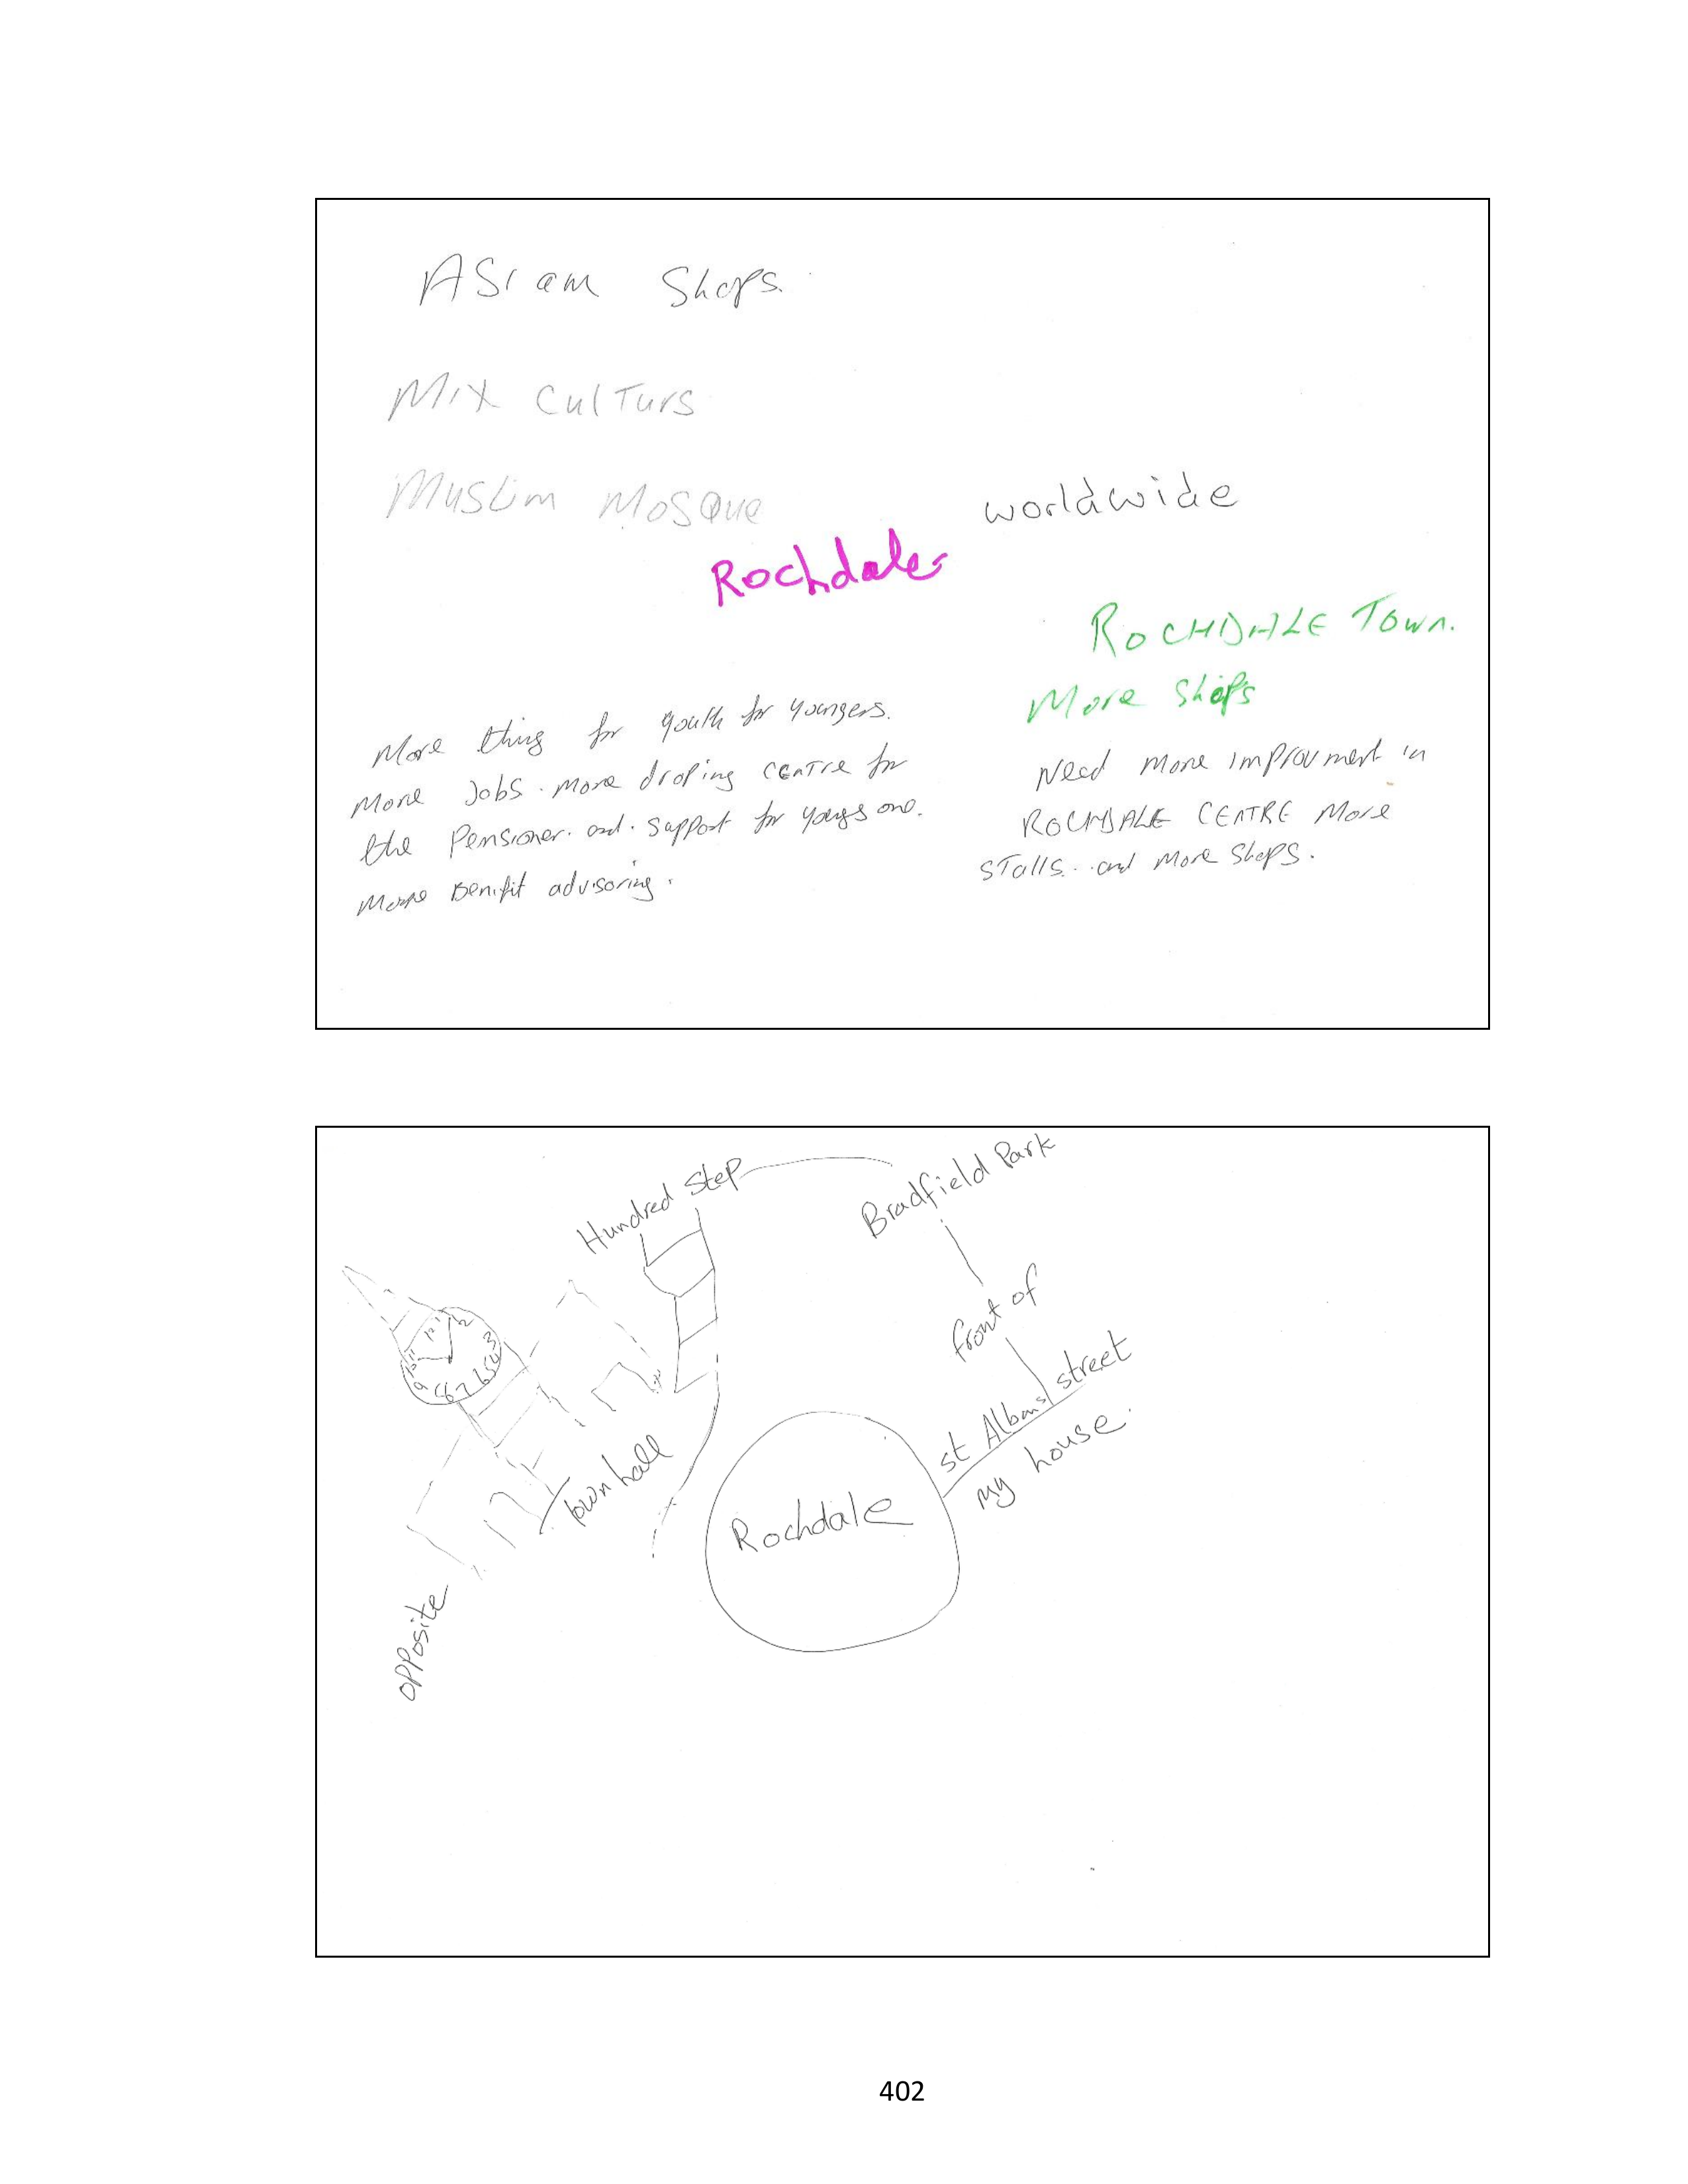 ASian Shops.
Mix Culturs
Muslim Mosque
worldwide
Rochdale
ROCHDALE Town.
More Shops
More thing for youth for youngers.
More Jobs. more droping centre for
the Pensioner. and. support for youngs one.
More Benifit advisoring.
Need more improvment in
ROCHDALE CENTRE More
STalls.. and More Shops.
Hundred Step
Bradfield Park
front of
st Albans street
my house.
Town hall
Rochdale
opposite
12 1 2 3 4 5 6 7 8 9 10 11
402